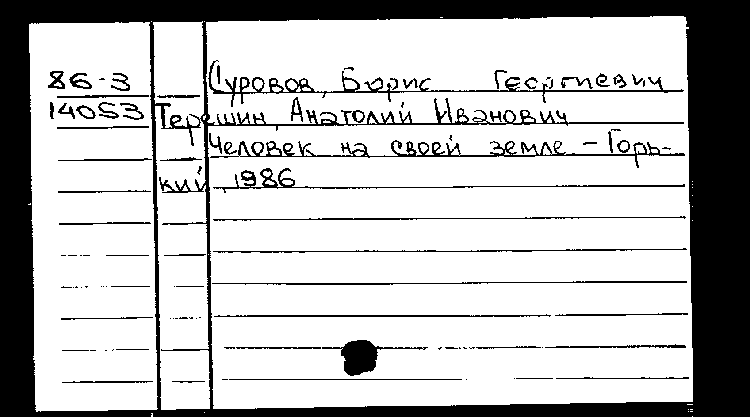 86-3 Суровов, Борис Георгиевич
14053 Терешин, Анатолий Иванович
Человек на своей земле – Горь-
кий, 1986